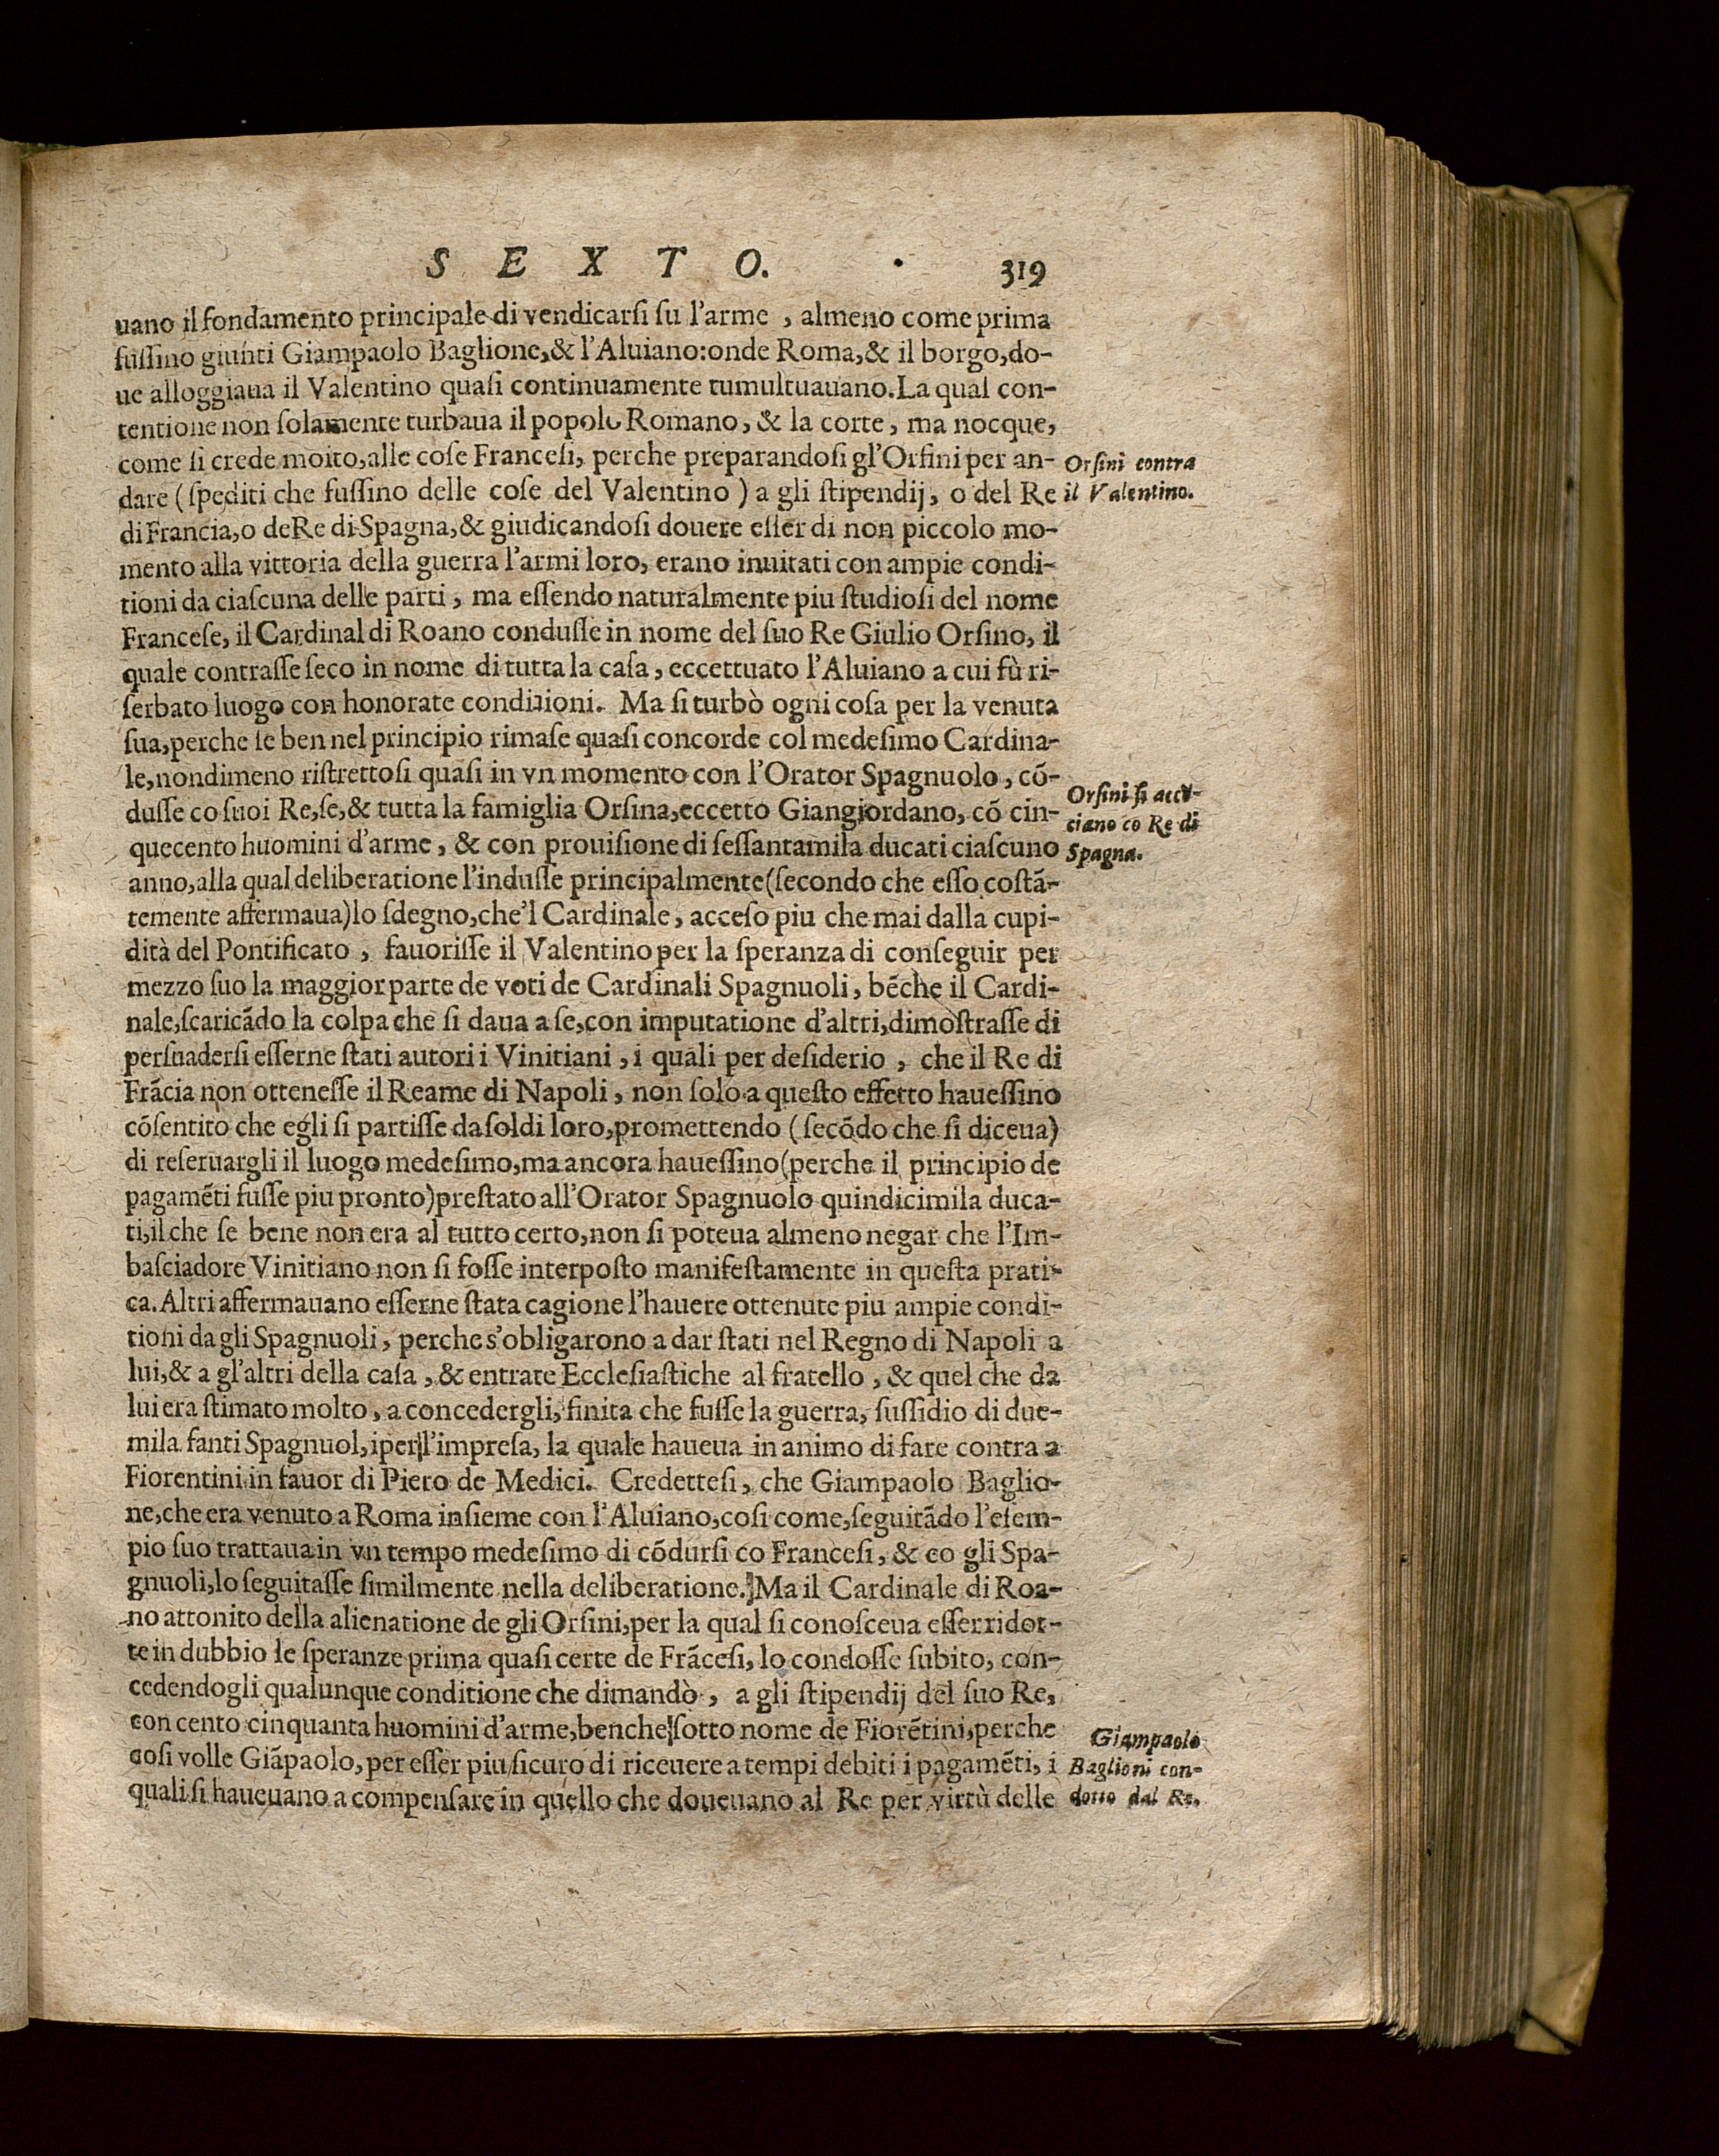 S E X T O. 319
uano il fondamento principale di vendicarsi su l'arme , almeno come prima
fussino giunti Giampaolo Baglione,& l'Aluiano:onde Roma,& il borgo,do-
ue alloggiaua il Valentino quasi continuamente tumultuauano.La qual con-
tentione non solamente turbaua il popolo Romano, & la corte, ma nocque,
come si crede molto,alle cose Francesi, perche preparandosi gl'Orsini per an-
Orsini contra
dare (spediti che fussino delle cose del Valentino ) a gli stipendij, o del Re
il Valentino.
di Francia,o deRe di Spagna,& giudicandosi douere esser di non piccolo mo-
mento alla vittoria della guerra l'armi loro, erano inuitati con ampie condi-
tioni da ciascuna delle parti, ma essendo naturalmente piu studiosi del nome
Francese, il Cardinal di Roano condusse in nome del suo Re Giulio Orsino, il
quale contrasse seco in nome di tutta la casa, eccettuato l'Aluiano a cui fù ri-
serbato luogo con honorate condizioni. Ma si turbò ogni cosa per la venuta
sua,perche se ben nel principio rimase quasi concorde col medesimo Cardina-
le,nondimeno ristrettosi quasi in vn momento con l'Orator Spagnuolo, cõ-
dusse co suoi Re,se,& tutta la famiglia Orsina,eccetto Giangiordano, cõ cin-
Orsini si acco-
ciano co Re di
quecento huomini d'arme, & con prouisione di sessantamila ducati ciascuno
Spagna.
anno,alla qual deliberatione l'indusse principalmente(secondo che esso costã-
temente affermaua)lo sdegno,che'l Cardinale, acceso piu che mai dalla cupi-
dità del Pontificato , fauorisse il Valentino per la speranza di conseguir per
mezzo suo la maggior parte de voti de Cardinali Spagnuoli, bẽche il Cardi-
nale,scaricãdo la colpa che si daua a se,con imputatione d'altri,dimostrasse di
persuadersi esserne stati autori i Vinitiani , i quali per desiderio , che il Re di
Frãcia non ottenesse il Reame di Napoli, non solo a questo effetto hauessino
cõsentito che egli si partisse da soldi loro,promettendo (secõdo che si diceua)
di reseruargli il luogo medesimo,ma ancora hauessino(perche il principio de
pagamẽti fusse piu pronto)prestato all'Orator Spagnuolo quindicimila duca-
ti,il che se bene non era al tutto certo,non si poteua almeno negar che l'Im-
basciadore Vinitiano non si fosse interposto manifestamente in questa prati-
ca.Altri affermauano esserne stata cagione l'hauere ottenute piu ampie condi-
tioni da gli Spagnuoli, perche s'obligarono a dar stati nel Regno di Napoli a
lui,& a gl'altri della casa, & entrate Ecclesiastiche al fratello , & quel che da
lui era stimato molto, a concedergli, finita che fusse la guerra, sussidio di due-
mila fanti Spagnuol,iper l'impresa, la quale haueua in animo di fare contra a
Fiorentini in fauor di Piero de Medici. Credettesi, che Giampaolo Baglio-
ne,che era venuto a Roma insieme con l'Aluiano,cosi come,seguitãdo l'esem-
pio suo trattaua in vn tempo medesimo di cõdursi co Francesi, & co gli Spa-
gnuoli,lo seguitasse similmente nella deliberatione. Ma il Cardinale di Roa-
no attonito della alienatione de gli Orsini,per la qual si conosceua esser ridot-
te in dubbio le speranze prima quasi certe de Frãcesi, lo condosse subito, con-
cedendogli qualunque conditione che dimandò , a gli stipendij del suo Re,
con cento cinquanta huomini d'arme,benche sotto nome de Fiorẽtini,perche
Giampaolo
cosi volle Giãpaolo, per esser piu sicuro di riceuere a tempi debiti i pagamẽti, i
Baglioni con-
quali si haueuano a compensare in quello che doueuano al Re per virtù delle
dotto dal Re.